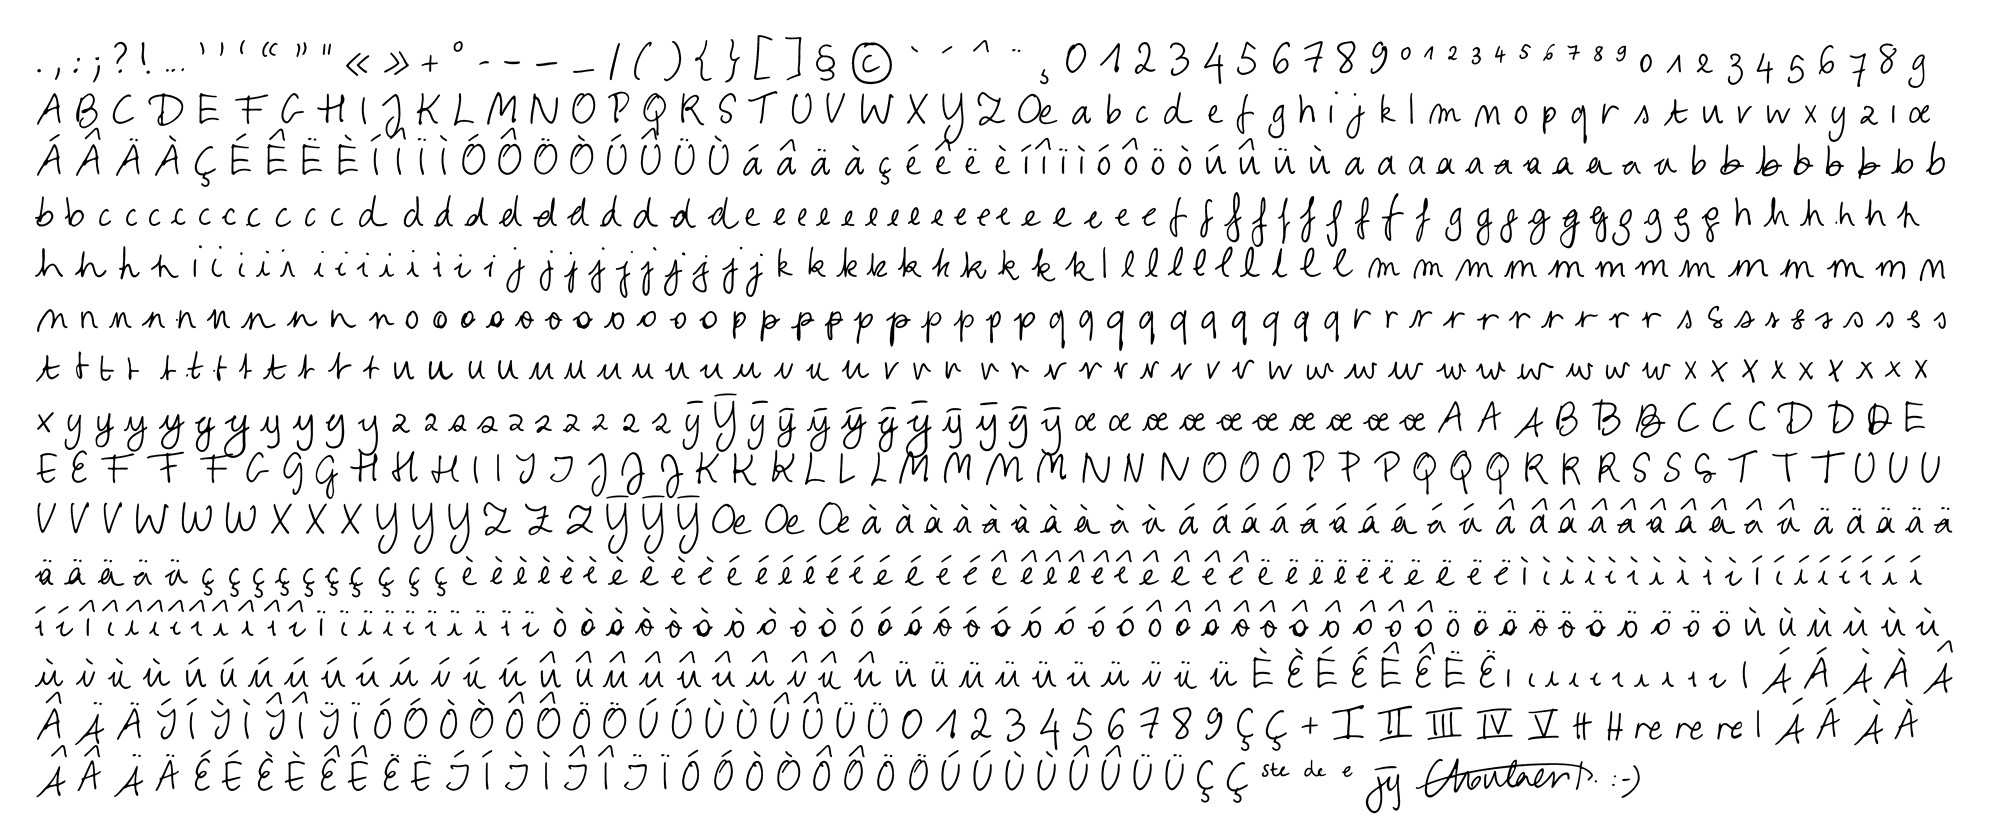 . , : ; ? ! ... ' ' ‘ “ ” " « » + ° - – — _ / ( ) { } [ ] § © ` ´ ^ ¨ ¸ 0 1 2 3 4 5 6 7 8 9 0 1 2 3 4 5 6 7 8 9 0 1 2 3 4 5 6 7 8 9
A B C D E F G H I J K L M N O P Q R S T U V W X Y Z Œ a b c d e f g h i j k l m n o p q r s t u v w x y z ı œ
Á Â Ä À Ç É Ê Ë È Í Î Ï Ì Ó Ô Ö Ò Ú Û Ü Ù á â ä à ç é ê ë è í î ï ì ó ô ö ò ú û ü ù a a a a a a a a a a a b b b b b b b b
b b c c c c c c c c c c c d d d d d d d d d d d d e e e e e e e e e e e e e e e e e f f f f f f f f f f f g g g g g g g g g g h h h h h h
h h h h i i i i i i i i i i i i i j j j j j j j j j j j k k k k k k k k k k k l l l l l l l l l l l m m m m m m m m m m m m n
n n n n n n n n n n n o o o o o o o o o o o o p p p p p p p p p p p q q q q q q q q q q q r r r r r r r r r r r s s s s s s s s s s
t t t t t t t t t t t t t u u u u u u u u u u u u u u v v v v v v v v v v v v w w w w w w w w w w w x x x x x x x x x
x y y y y y y y y y y y z z z z z z z z z z ÿ ȳ ȳ ȳ ȳ ȳ ȳ ȳ ȳ ȳ ȳ ȳ œ œ œ œ œ œ œ œ œ œ œ A A A B B B C C C D D D E
E E F F F G G G H H H I I J J J J J K K K L L L M M M M N N N O O O P P P Q Q Q R R R S S S T T T U U U
V V V W W W X X X Y Y Y Z Z Z Ȳ Ȳ Ȳ Œ Œ Œ à à à à à à à à à à á á á á á á á á á á â â â â â â â â â â ä ä ä ä ä
ä ä ä ä ä ç ç ç ç ç ç ç ç ç ç è è è è è è è è è è é é é é é é é é é é ê ê ê ê ê ê ê ê ê ê ë ë ë ë ë ë ë ë ë ë ì ì ì ì ì ì ì ì ì ì í í í í í í í í
í í î î î î î î î î î î ï ï ï ï ï ï ï ï ï ï ò ò ò ò ò ò ò ò ò ò ó ó ó ó ó ó ó ó ó ó ô ô ô ô ô ô ô ô ô ô ö ö ö ö ö ö ö ö ö ö ù ù ù ù ù ù
ù ù ù ù ú ú ú ú ú ú ú ú ú ú û û û û û û û û û û ü ü ü ü ü ü ü ü ü ü È È É É Ê Ê Ë Ë ı ı ı ı ı ı ı ı ı l Á Á À À Â
Â Ä Ä Í Í Ì Ì Î Î Ï Ï Ó Ó Ò Ò Ô Ô Ö Ö Ú Ú Ù Ù Û Û Ü Ü 0 1 2 3 4 5 6 7 8 9 Ç Ç + I II III IV V H H re re re l Á Á À À
Â Â Ä Ä É É È È Ê Ê Ë Ë Í Í Ì Ì Î Î Ï Ï Ó Ó Ò Ò Ô Ô Ö Ö Ú Ú Ù Ù Û Û Ü Ü Ç Ç ste de e :-)